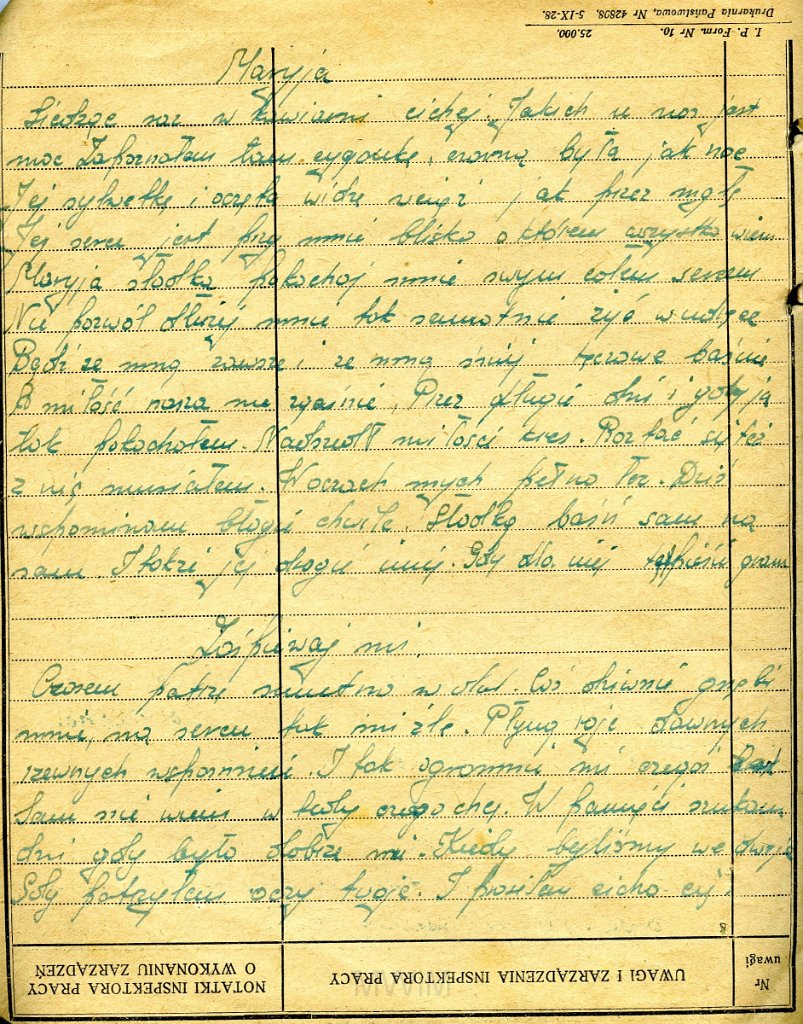 Drukarnia Państwowa, Nr 42808. 5-IX-28.
I. P. Form. Nr 10. 25.000.
Maryja
Siedzę raz w kawiarni cichej. Jakich u nas jest
moc Zapoznałem tam cygankę, czarną była jak noc
Jej sylwetkę i oczęta widzę wciąż jak przez mgłę
Jej serce jest przy mnie blisko o którem wszystko wiem
Maryja słodka pokochaj mnie swym całem sercem
Nie pozwól dłużej mnie tak samotnie żyć w udręce
Bądź ze mną zawsze i ze mną śnij tęczowe baśnie
A miłość nasza nie zgaśnie, Przez długie dni i gdy ją
tak pokochałem. Nadszedł miłości kres. Rozstać się też
z nią musiałem. W oczach mych pełno łez. Dziś
wspominam błogie chwile. Słodką baśń sam na
sam. I także jej drogie imię. Gdy dla niej tę pieśń gram
Zaśpiewaj mi.
Czasem patrzę smutno w dal. Coś dziwnie gnębi
mnie, na sercu tak mi źle. Płyną roje dawnych
rzewnych wspomnień. I tak ogromnie mi czegoś żal
Sam nie wiem w tedy czego chcę. W pamięci szukam
dni gdy było dobrze mi. Kiedy byliśmy we dwoje
Gdy patrzyłem oczy twoje. I prosiłem cicho cię
NOTATKI INSPEKTORA PRACY
O WYKONANIU ZARZĄDZEŃ
UWAGI I ZARZĄDZENIA INSPEKTORA PRACY
Nr
uwagi
MWIM